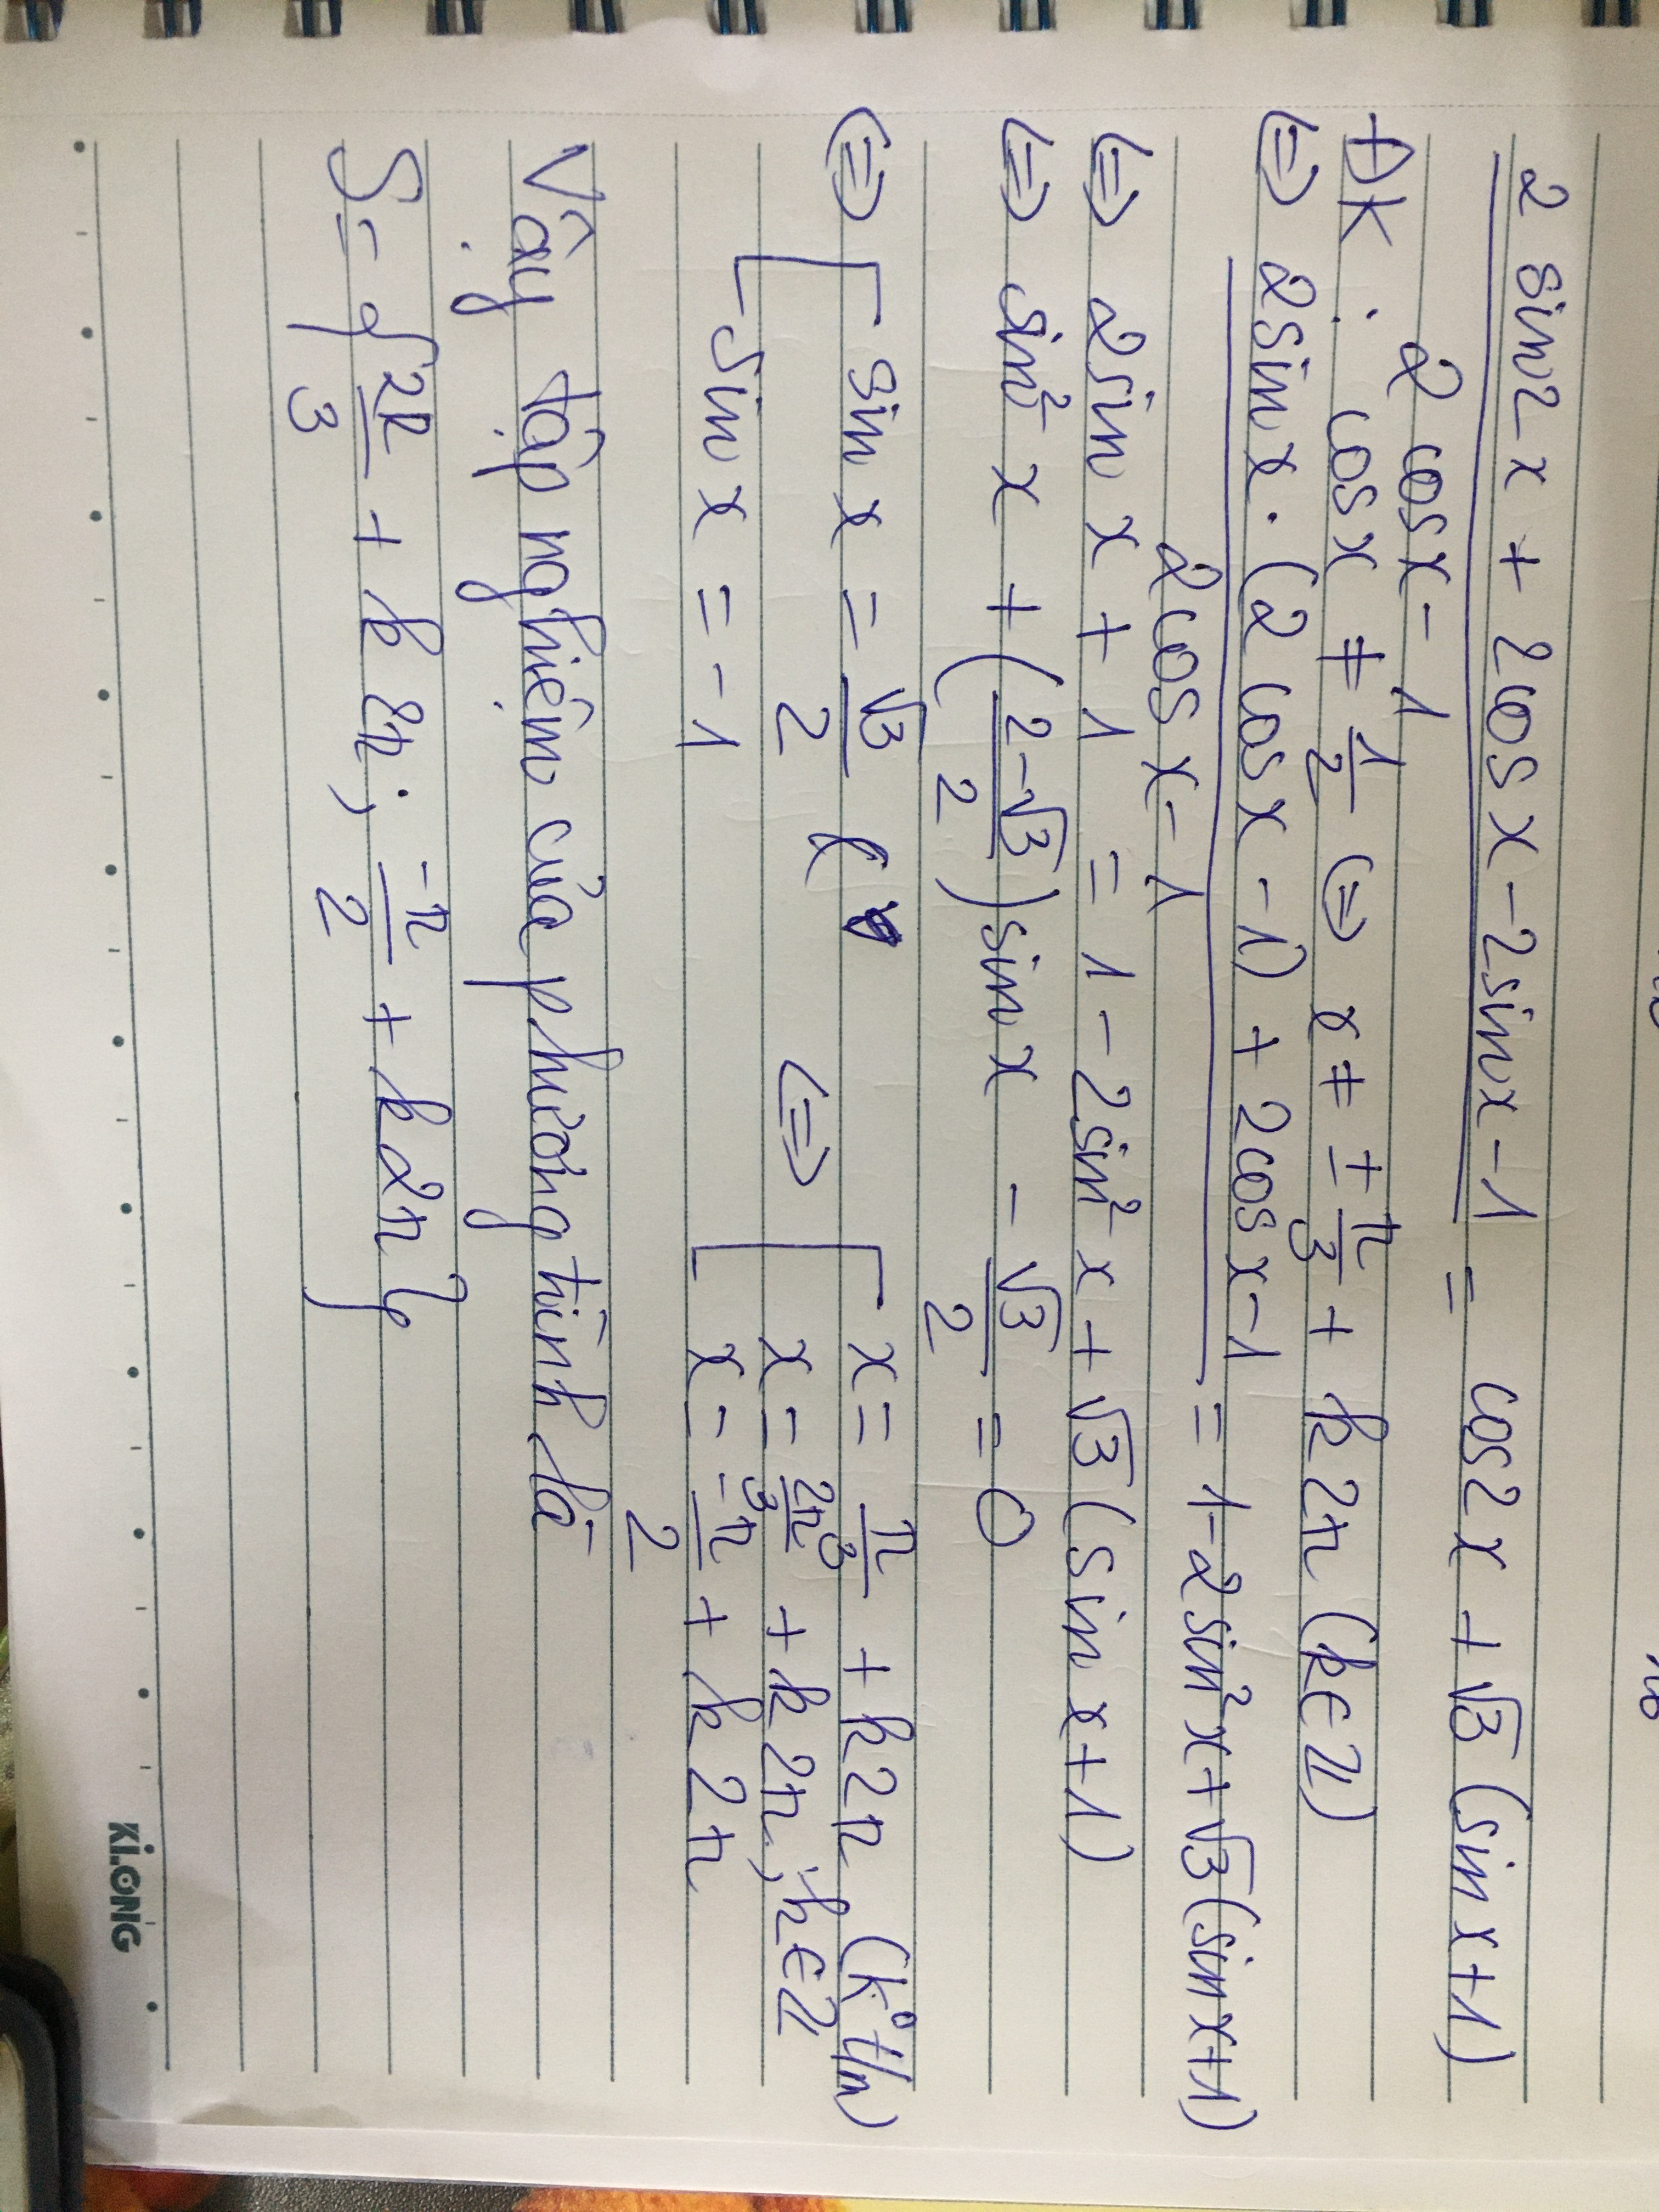 2 sin2x + 2cosx - 2sinx - 1 = cos2x + √3 (sinx+1)
2 cosx - 1
ĐK : cosx ≠ 1/2 ⇔ x ≠ ± π/3 + k2π (k∈Z)
⇔ 2sinx.(2cosx - 1) + 2cosx - 1 = 1 - 2sin²x + √3(sinx+1)
2cosx - 1
⇔ 2sinx + 1 = 1 - 2sin²x + √3 (sinx+1)
⇔ sin²x + (2-√3/2)sinx - √3/2 = 0
⇔ [ sinx = √3/2 ⇔ [ x = π/3 + k2π (k° t/m)
x = 2π/3 + k2π, k∈Z
sinx = -1 x = -π/2 + k2π
Vậy tập nghiệm của phương trình là
S = {2π/3 + k2π; -π/2 + k2π}
Ki.ONG